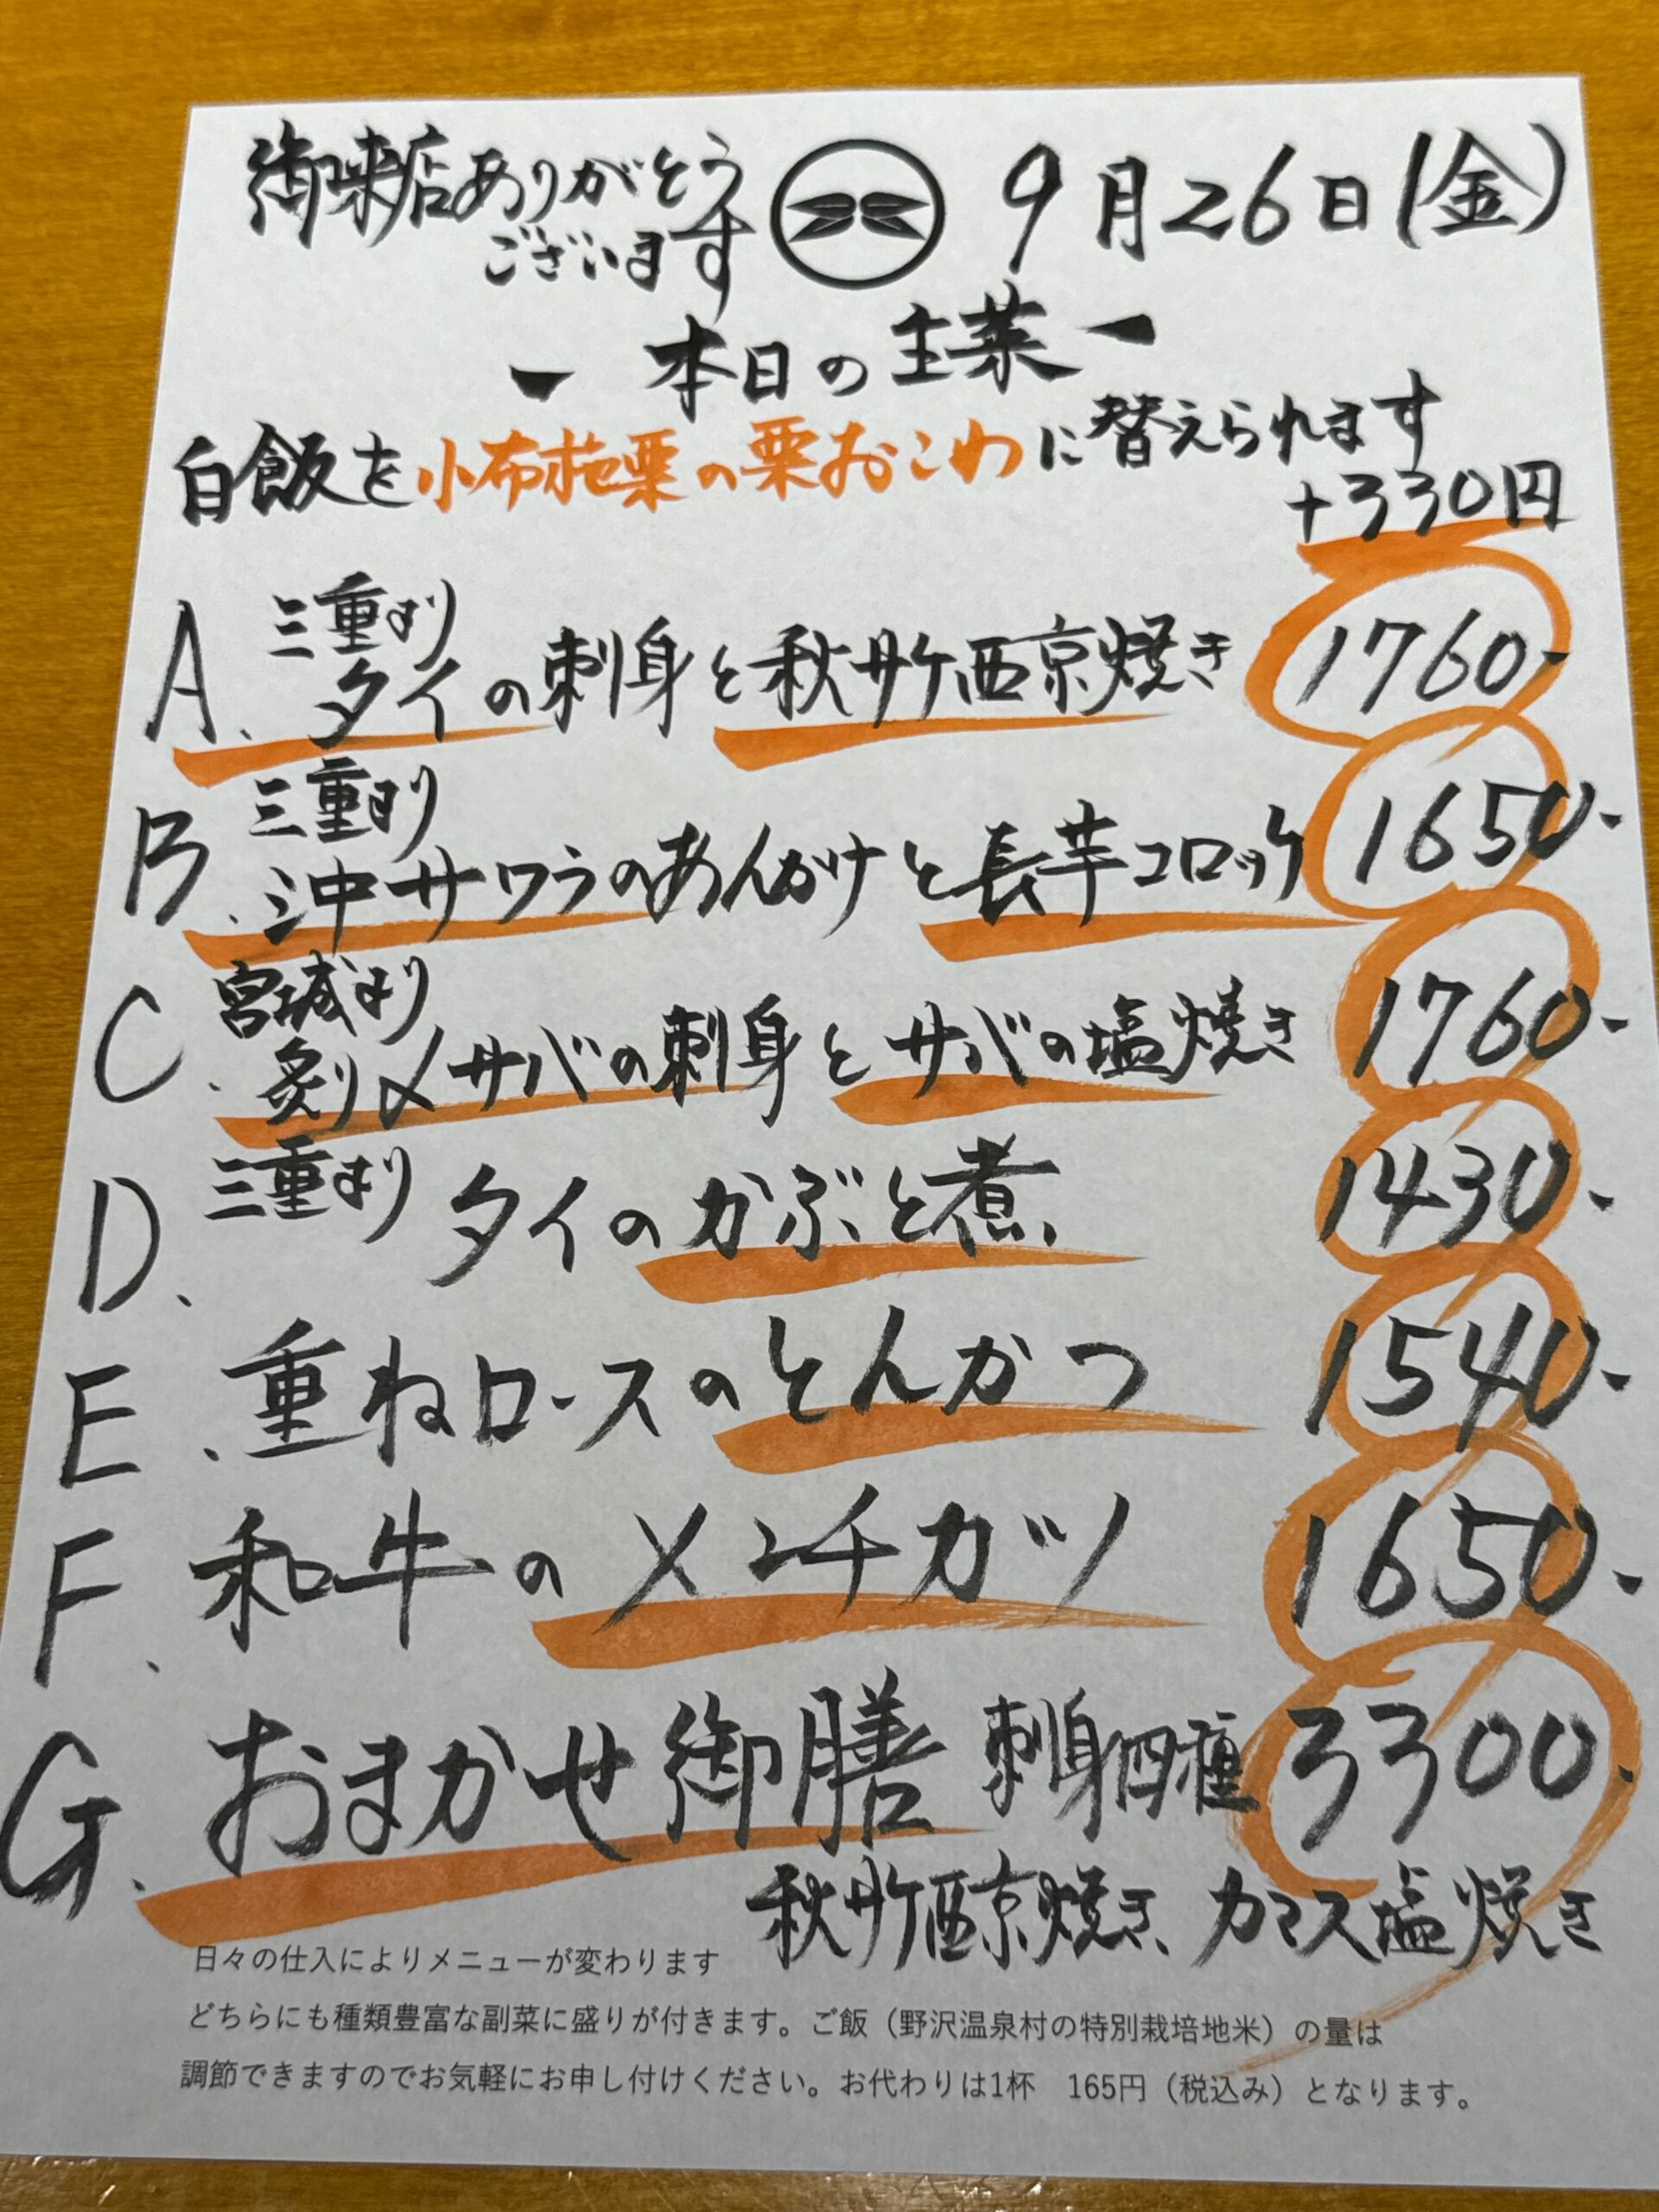 御来店ありがとう
ございます
9月26日(金)
ー 本日の主菜 ー
白飯を小布施栗の栗おこわに替えられます
+330円
A. 三重より
タイの刺身と秋サケ西京焼き 1760-
B. 三重より
沖サワラのあんかけと長芋コロッケ 1650-
C. 宮城より
炙り〆サバの刺身とサバの塩焼き 1760-
D. 三重より タイのかぶと煮 1430-
E. 重ねロースのとんかつ 1540-
F. 和牛のメンチカツ 1650-
G. おまかせ御膳 刺身四種 3300.
秋サケ西京焼き、カマス塩焼き
日々の仕入によりメニューが変わります
どちらにも種類豊富な副菜に盛りが付きます。ご飯（野沢温泉村の特別栽培地米）の量は
調節できますのでお気軽にお申し付けください。お代わりは1杯　165円（税込み）となります。